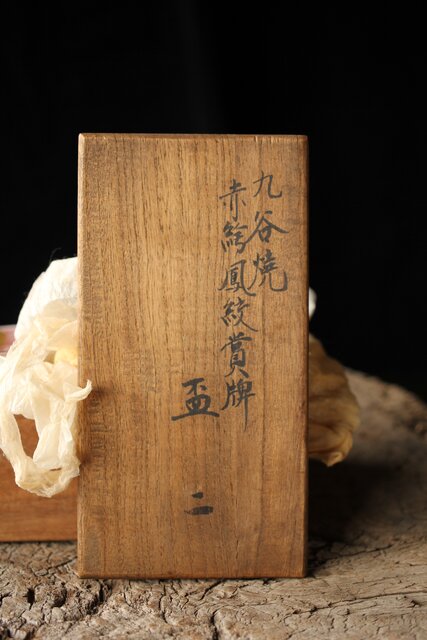 九谷焼
赤絵鳳紋賞牌
盃
二